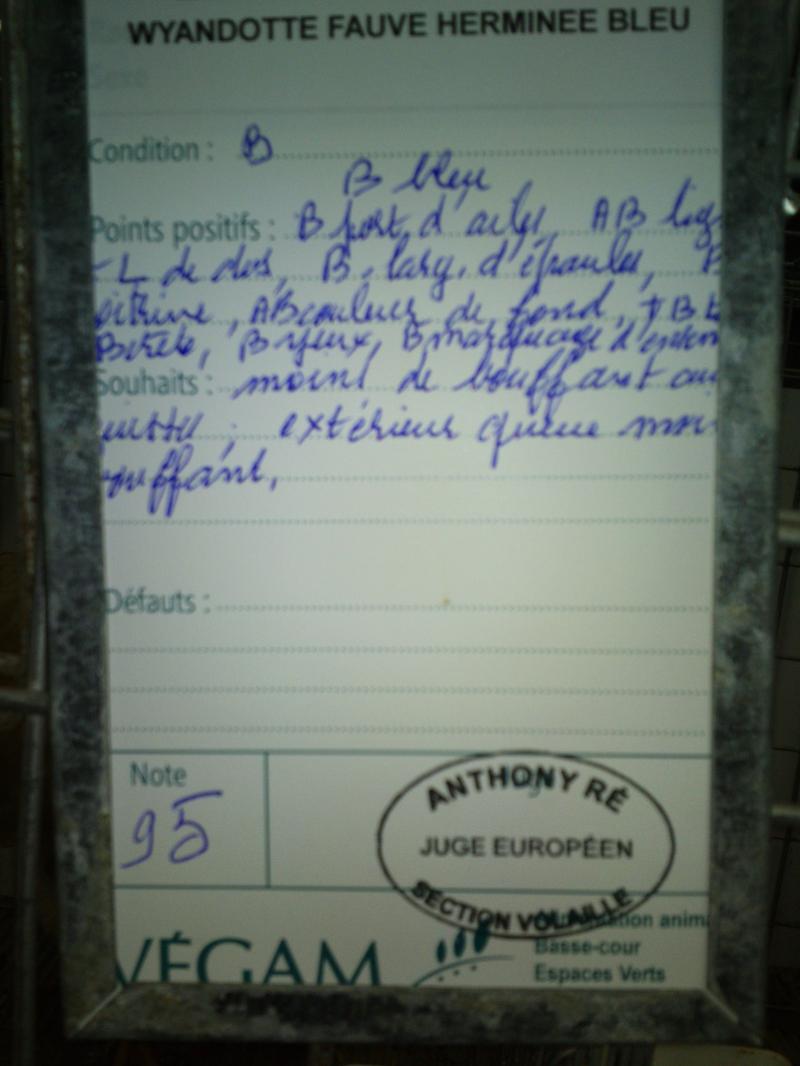 WYANDOTTE FAUVE HERMINEE BLEU
Sexe
Condition : B
B bleu
Points positifs : B port, d'ailes, AB lig
- L de dos, B. larg. d'épaules, B
oitrine, AB couleur de fond, TB
B crête, B yeux, B marquage d'
Souhaits : moins de bouffant au
extérieur queue moi
ouffant,
Défauts :
Note
95
ANTHONY RÉ
JUGE EUROPÉEN
SECTION VOLAILLE
VÉGAM
tion anima
Basse-cour
Espaces Verts